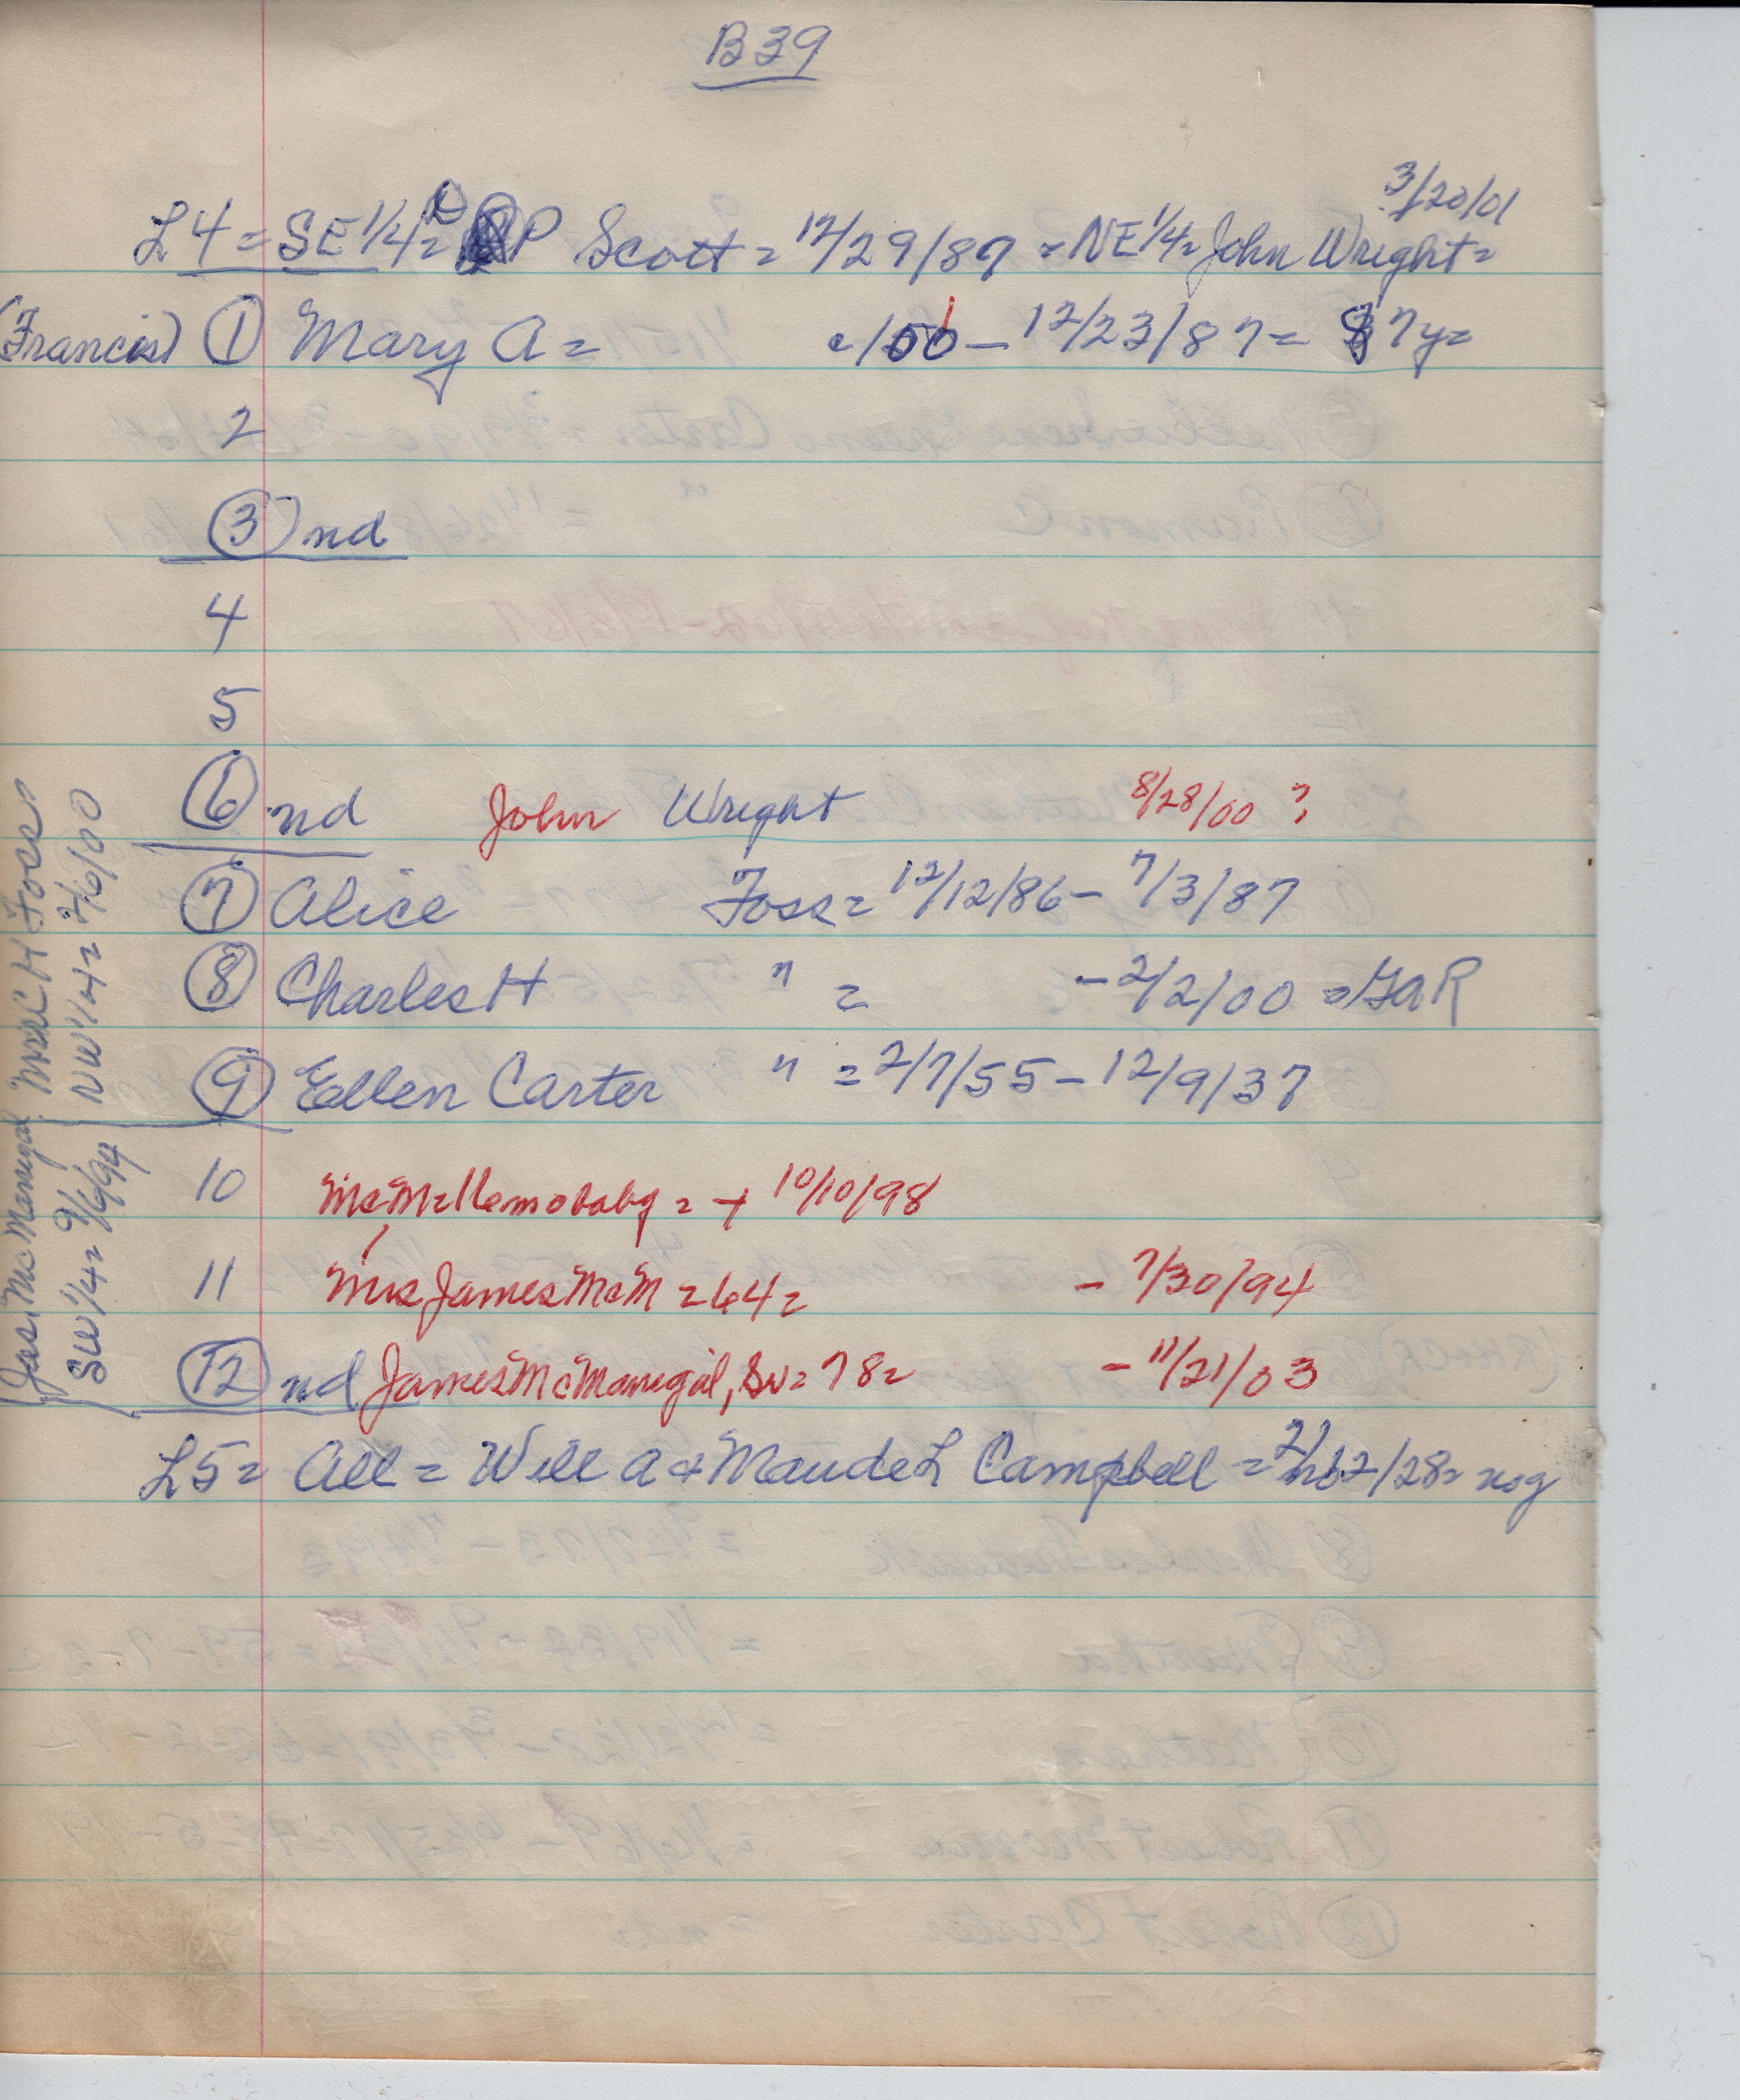 B39
3/20/01
L4 = SE 1/4 = P Scott = 12/29/87 = NE 1/4 = John Wright =
(Francis) 1 Mary A = c/50 - 12/23/87 = 37y =
2
3 nd
4
5
6 nd John Wright 8/28/00 ?
7 Alice Foss = 12/12/86 - 7/3/87
8 Charles H " = - 2/2/00 = GAR
9 Ellen Carter " = 2/7/55 - 12/9/37
10 baby = + 10/10/98
11 Mrs James McM = 64 = - 7/30/94
12 nd James McManigal, Sr = 78 = - 11/21/03
L5 = All = Will A + Maude L Campbell = /28 = nsg
Jas. McManigal
SW 1/4 = 9/6/94
Mrs C H Foss
NW 1/4 = 2/6/00